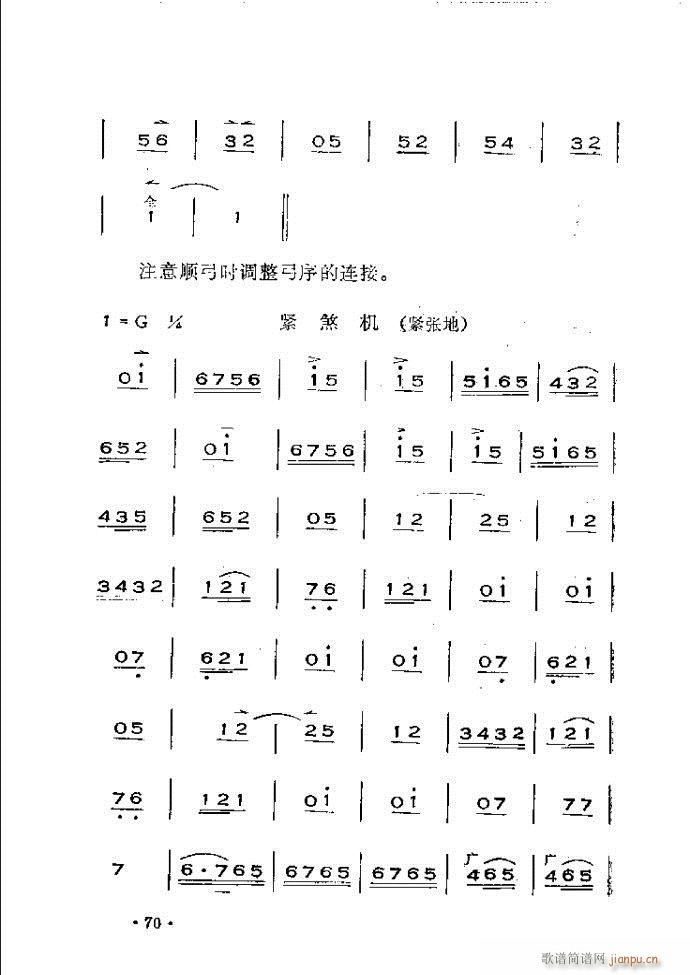 | 56 | 32 | 05 | 52 | 54 | 32 |
| 全 1 | 1 ||
注意顺弓时调整弓序的连接。
1=G ¼ 紧煞机 (紧张地)
0i | 6756 | i5 | i5 | 5i65 | 432 |
652 | 0i | 6756 | i5 | i5 | 5i65 |
435 | 652 | 05 | 12 | 25 | 12 |
3432 | 121 | 76 | 121 | 0i | 0i |
07 | 621 | 0i | 0i | 07 | 621 |
05 | 12 | 25 | 12 | 3432 | 121 |
76 | 121 | 0i | 0i | 07 | 77 |
7 | 6·765 | 6765 | 6765 | 广 465 | 广 465 |
·70·
歌谱简谱网 jianpu.cn